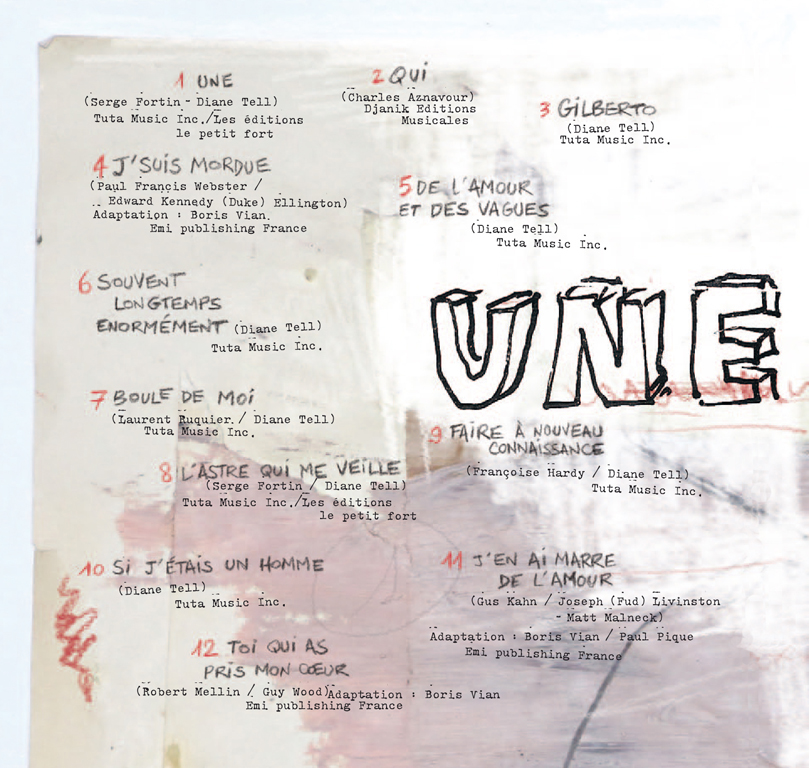 1 UNE
(Serge Fortin - Diane Tell)
Tuta Music Inc./Les éditions
le petit fort
2 QUI
(Charles Aznavour)
Djanik Editions
Musicales
3 GILBERTO
(Diane Tell)
Tuta Music Inc.
4 J'SUIS MORDUE
(Paul Francis Webster /
Edward Kennedy (Duke) Ellington)
Adaptation : Boris Vian.
Emi publishing France
5 DE L'AMOUR
ET DES VAGUES
(Diane Tell)
Tuta Music Inc.
6 SOUVENT
LONGTEMPS
ENORMÉMENT (Diane Tell)
Tuta Music Inc.
UNE
7 BOULE DE MOI
(Laurent Ruquier. / Diane Tell)
Tuta Music Inc.
8 L'ASTRE QUI ME VEILLE
(Serge Fortin / Diane Tell)
Tuta Music Inc./Les éditions
le petit fort
9 FAIRE À NOUVEAU
CONNAISSANCE
(Françoise Hardy / Diane Tell)
Tuta Music Inc.
10 Si J'ÉTAIS UN HOMME
(Diane Tell)
Tuta Music Inc.
11 J'EN Ai MARRE
DE L'AMOUR
(Gus Kahn / Joseph (Fud) Livinston
- Matt Malneck)
Adaptation : Boris Vian / Paul Pique
Emi publishing France
12 TOI QUI AS
PRIS MON CŒUR
(Robert Mellin / Guy Wood)Adaptation : Boris Vian
Emi publishing France